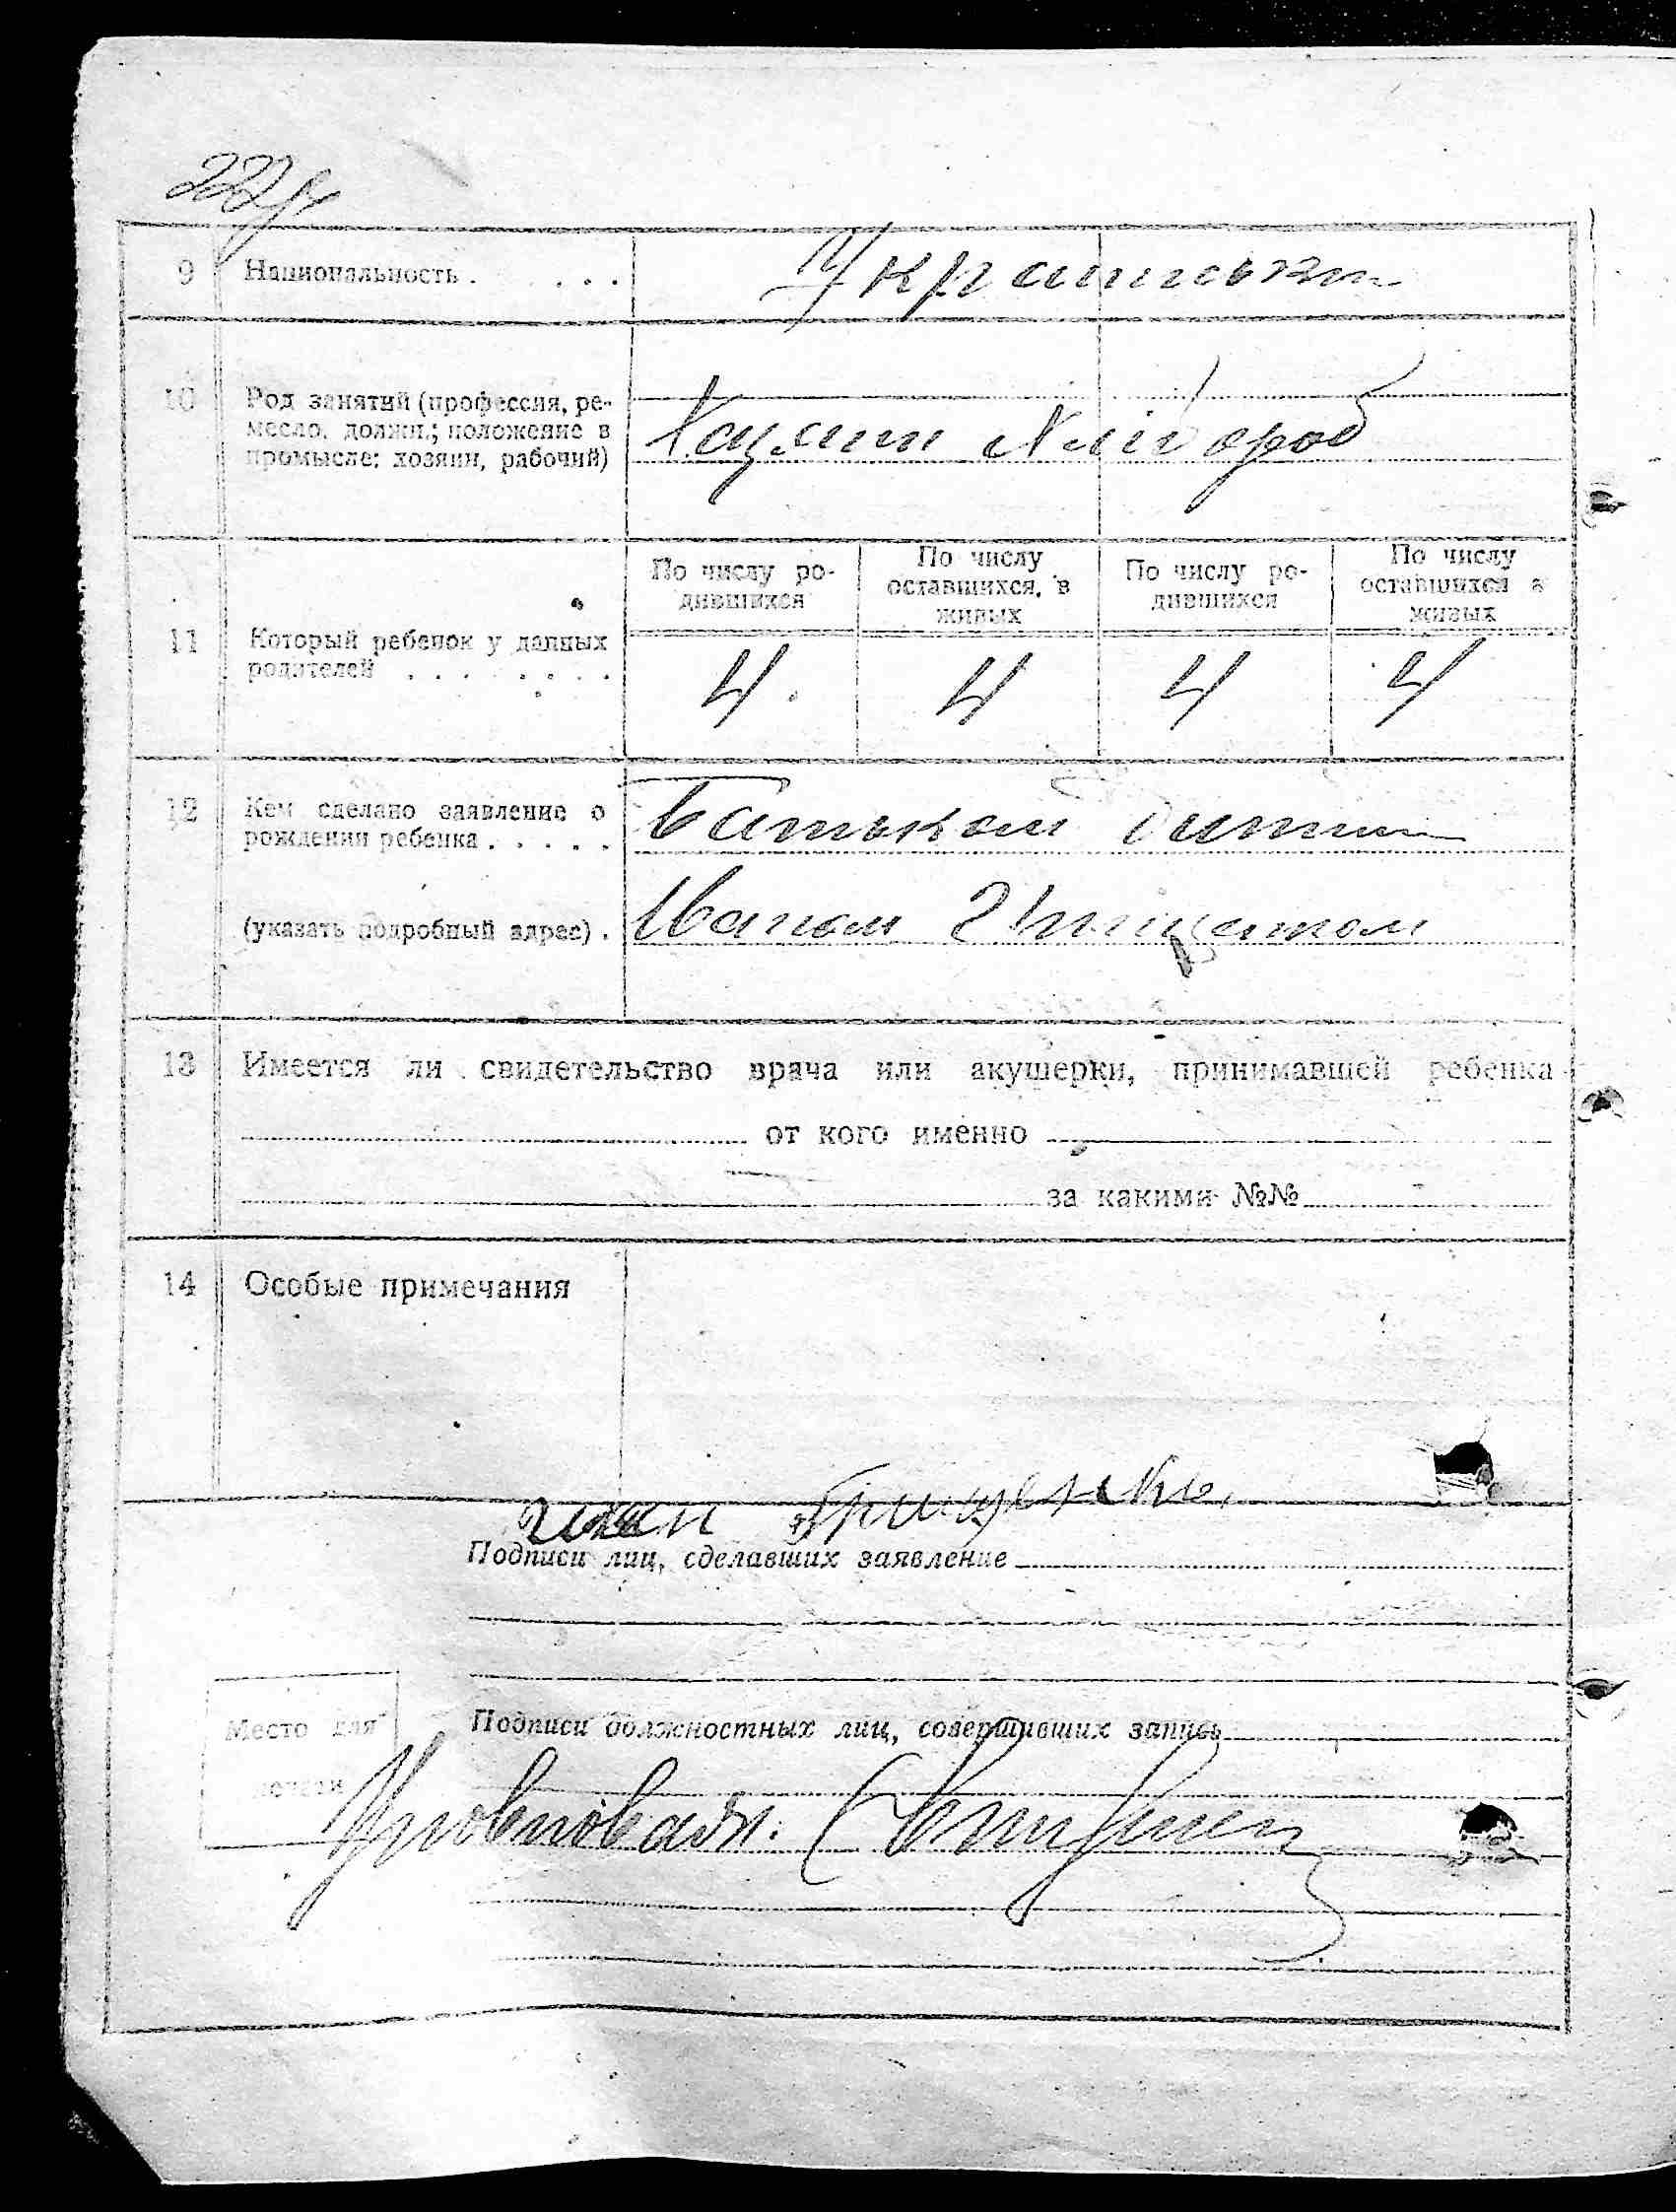 9 Национальность . . . . Українська
10 Род занятий (профессия, ре-
месло, должн.; положение в
промысле: хозяин, рабочий)
Хлібороб
По числу ро-
дившихся
По числу
оставшихся в
живых
По числу ро-
дившихся
По числу
оставшихся в
живых
11 Который ребенок у данных
родителей . . . . . . .
4. 4 4 4
12 Кем сделано заявление о
рождении ребенка . . . . .
Батьком дитини
(указать подробный адрес) . Іваном
13 Имеется ли свидетельство врача или акушерки, принимавшей ребенка
от кого именно
за какими №№
14 Особые примечания
Грищенко
Подписи лиц, сделавших заявление
Подписи должностных лиц, совершивших запись
Место для
печати